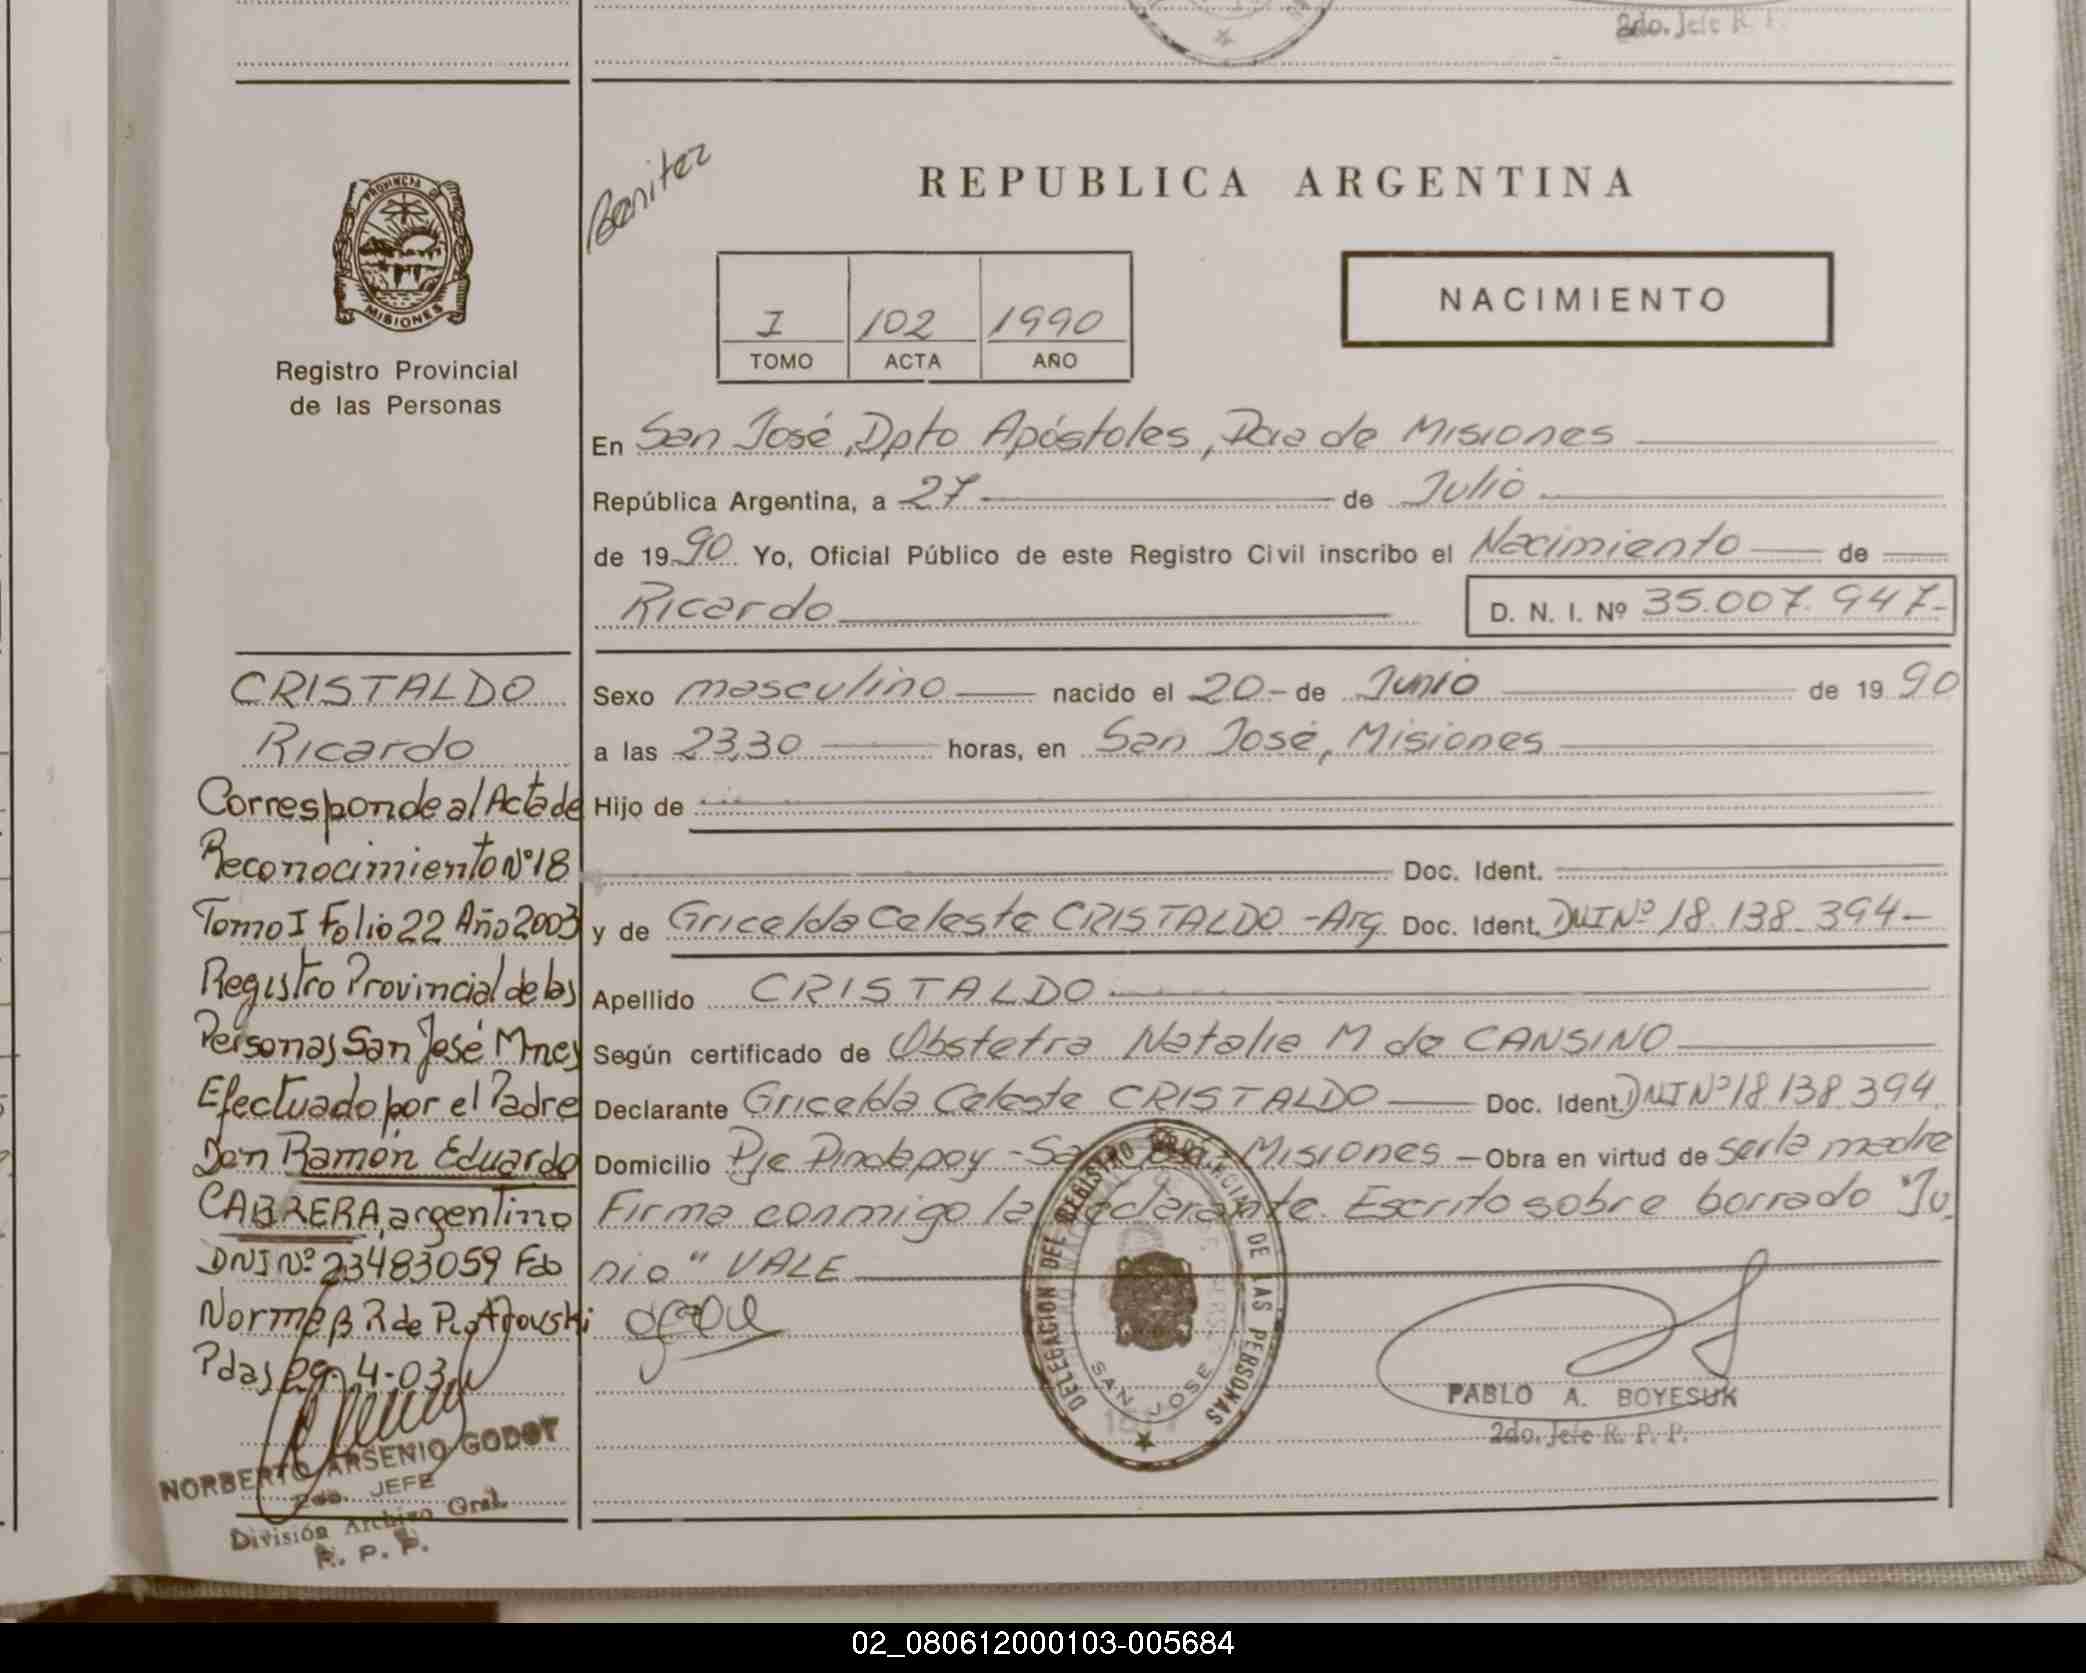 2do. Jefe R. P.
Benitez
REPUBLICA ARGENTINA
PROVINCIA DE
MISIONES
Registro Provincial
de las Personas
I 102 1990
TOMO ACTA AÑO
NACIMIENTO
En San José, Dpto Apóstoles, Pcia de Misiones
República Argentina, a 27 de Julio
de 1990 Yo, Oficial Público de este Registro Civil inscribo el Nacimiento de
Ricardo D. N. I. Nº 35.007.947-
Sexo masculino nacido el 20 - de Junio de 1990
a las 23,30 horas, en San José, Misiones
Hijo de
Doc. Ident.
y de Gricelda Celeste CRISTALDO - Arg. Doc. Ident. DNI Nº 18.138.394-
Apellido CRISTALDO
Según certificado de Obstetra Natalia M de CANSINO
Declarante Gricelda Celeste CRISTALDO Doc. Ident. DNI Nº 18 138.394
Domicilio Pje Pindapoy - San José - Misiones - Obra en virtud de ser la madre
Firma conmigo la declarante. Escrito sobre borrado "Ju
nio" VALE
CRISTALDO
Ricardo
Corresponde al Acta de
Reconocimiento Nº 18
Tomo I Folio 22 Año 2003
Registro Provincial de las
Personas San José Mnes
Efectuado por el Padre
Don Ramón Eduardo
CABRERA, argentino
DNI Nº 23483059 Fdo
Norma B R de
Pdas 29-4-03
NORBERTO ARSENIO GODOY
2do. JEFE
División Archivo Gral.
R. P. P.
DELEGACION DEL REGISTRO PROVINCIAL DE LAS PERSONAS
SAN JOSE
PABLO A. BOYESUK
2do. Jefe R. P. P.
02_080612000103-005684